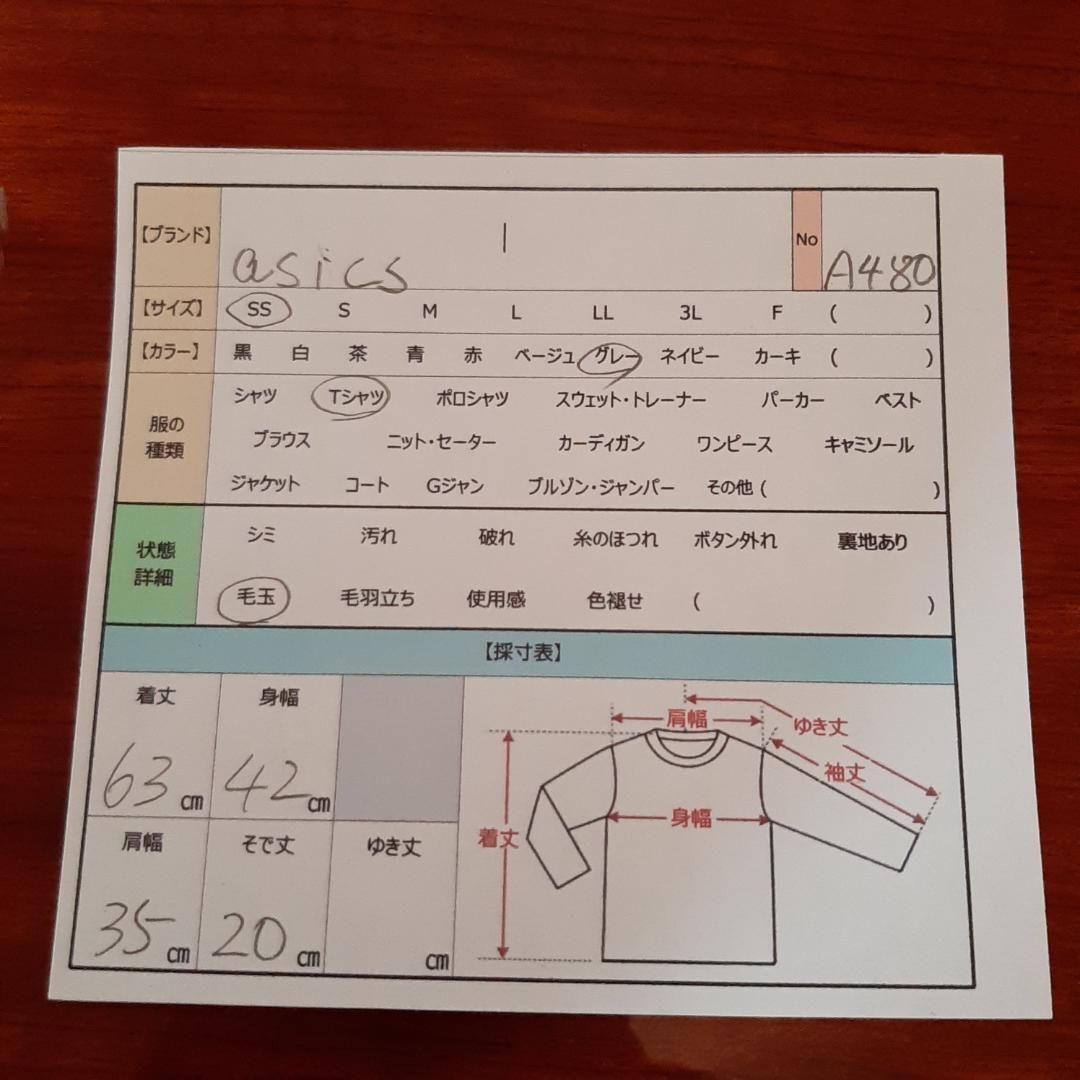 【ブランド】 asics No A480
【サイズ】 SS S M L LL 3L F ( )
【カラー】 黒 白 茶 青 赤 ベージュ グレー ネイビー カーキ ( )
服の種類
シャツ Tシャツ ポロシャツ スウェット・トレーナー パーカー ベスト
ブラウス ニット・セーター カーディガン ワンピース キャミソール
ジャケット コート Gジャン ブルゾン・ジャンパー その他 ( )
状態詳細
シミ 汚れ 破れ 糸のほつれ ボタン外れ 裏地あり
毛玉 毛羽立ち 使用感 色褪せ ( )
【採寸表】
着丈 身幅
63 cm 42 cm
肩幅 そで丈 ゆき丈
35 cm 20 cm cm
肩幅
ゆき丈
袖丈
身幅
着丈